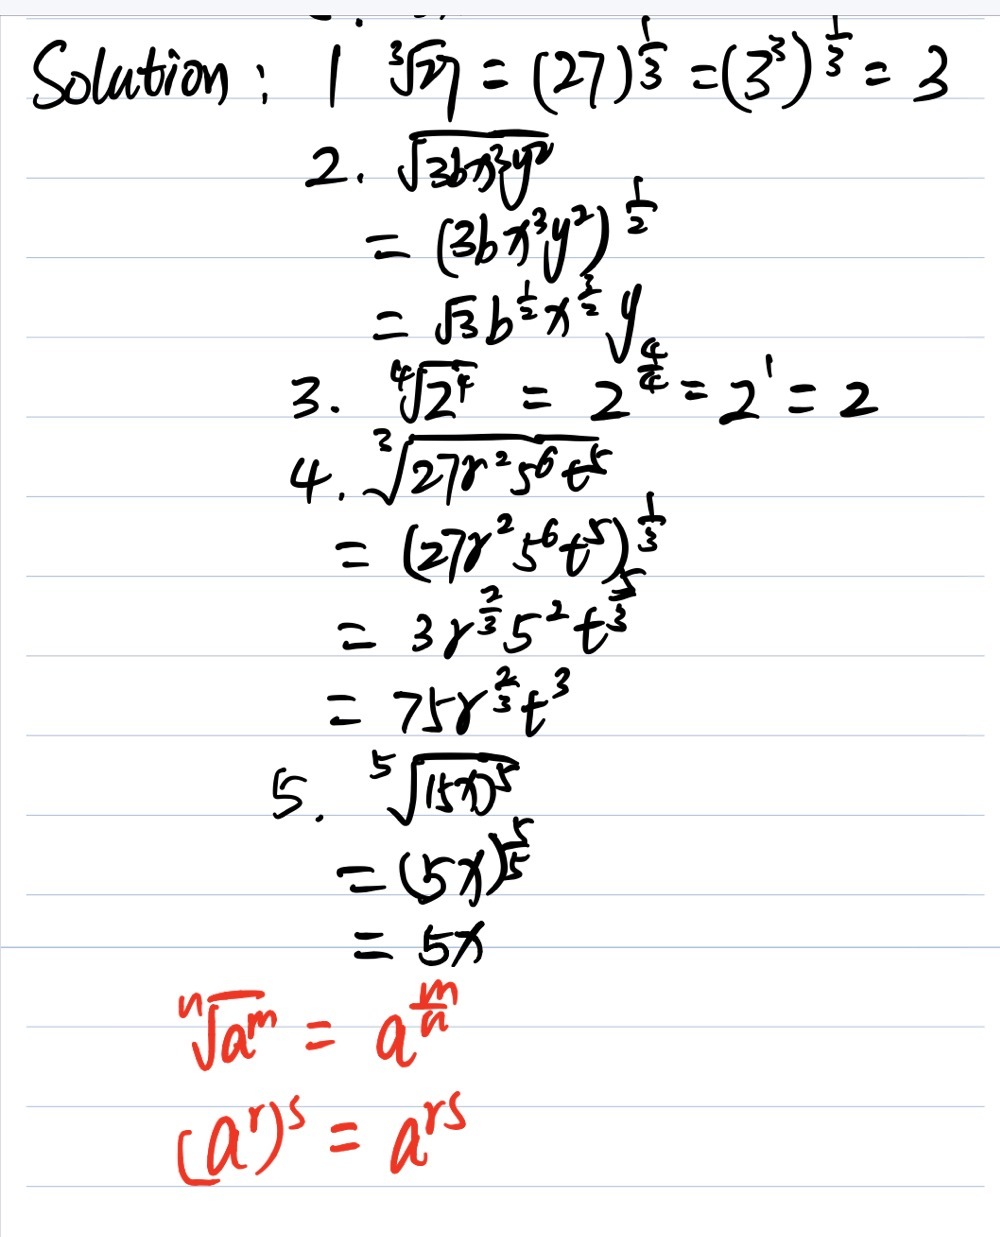 Solution: 1 ∛27 = (27)^(1/3) = (3^3)^(1/3) = 3
2. √(3bx^3y^2)
= (3bx^3y^2)^(1/2)
= √3 b^(1/2) x^(3/2) y
3. ⁴√(2^4) = 2^(4/4) = 2^1 = 2
4. ∛(27r^2 5^6 t^5)
= (27r^2 5^6 t^5)^(1/3)
= 3r^(2/3) 5^2 t^(5/3)
= 75r^(2/3) t^3
5. ⁵√(15x)^5
= (5x)^(5/5)
= 5x
ⁿ√(a^m) = a^(m/n)
(a^r)^s = a^(rs)